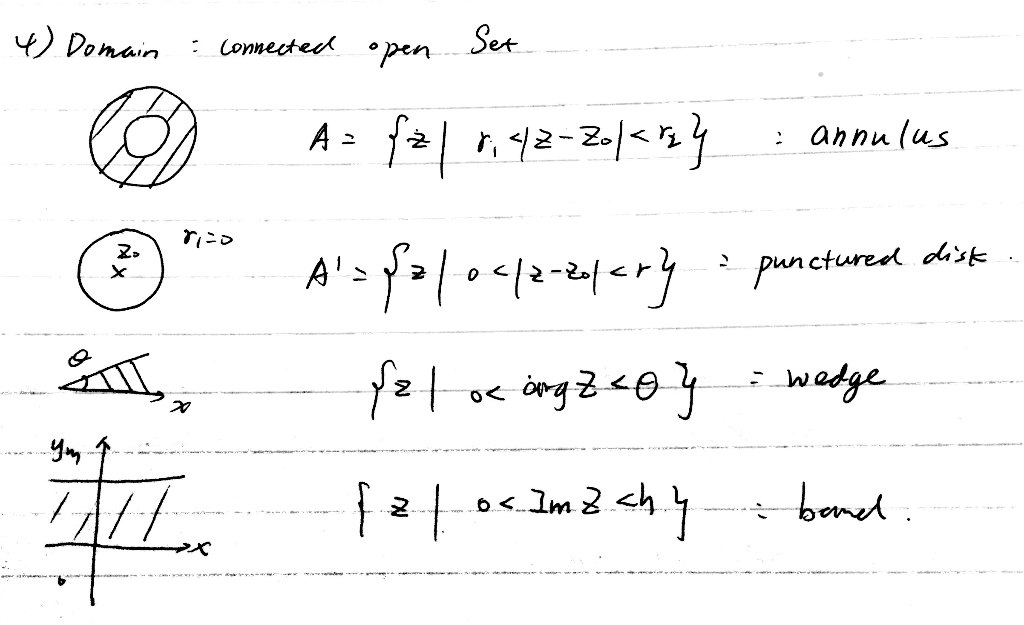 4) Domain : connected open Set
A = {z | r₁ < |z - z₀| < r₂} : annulus
z₀
×
r₁=0
A' = {z | 0 < |z - z₀| < r} : punctured disk.
θ
x
{z | 0 < arg z < θ} = wedge
x
{z | 0 < Im z < h} : band.